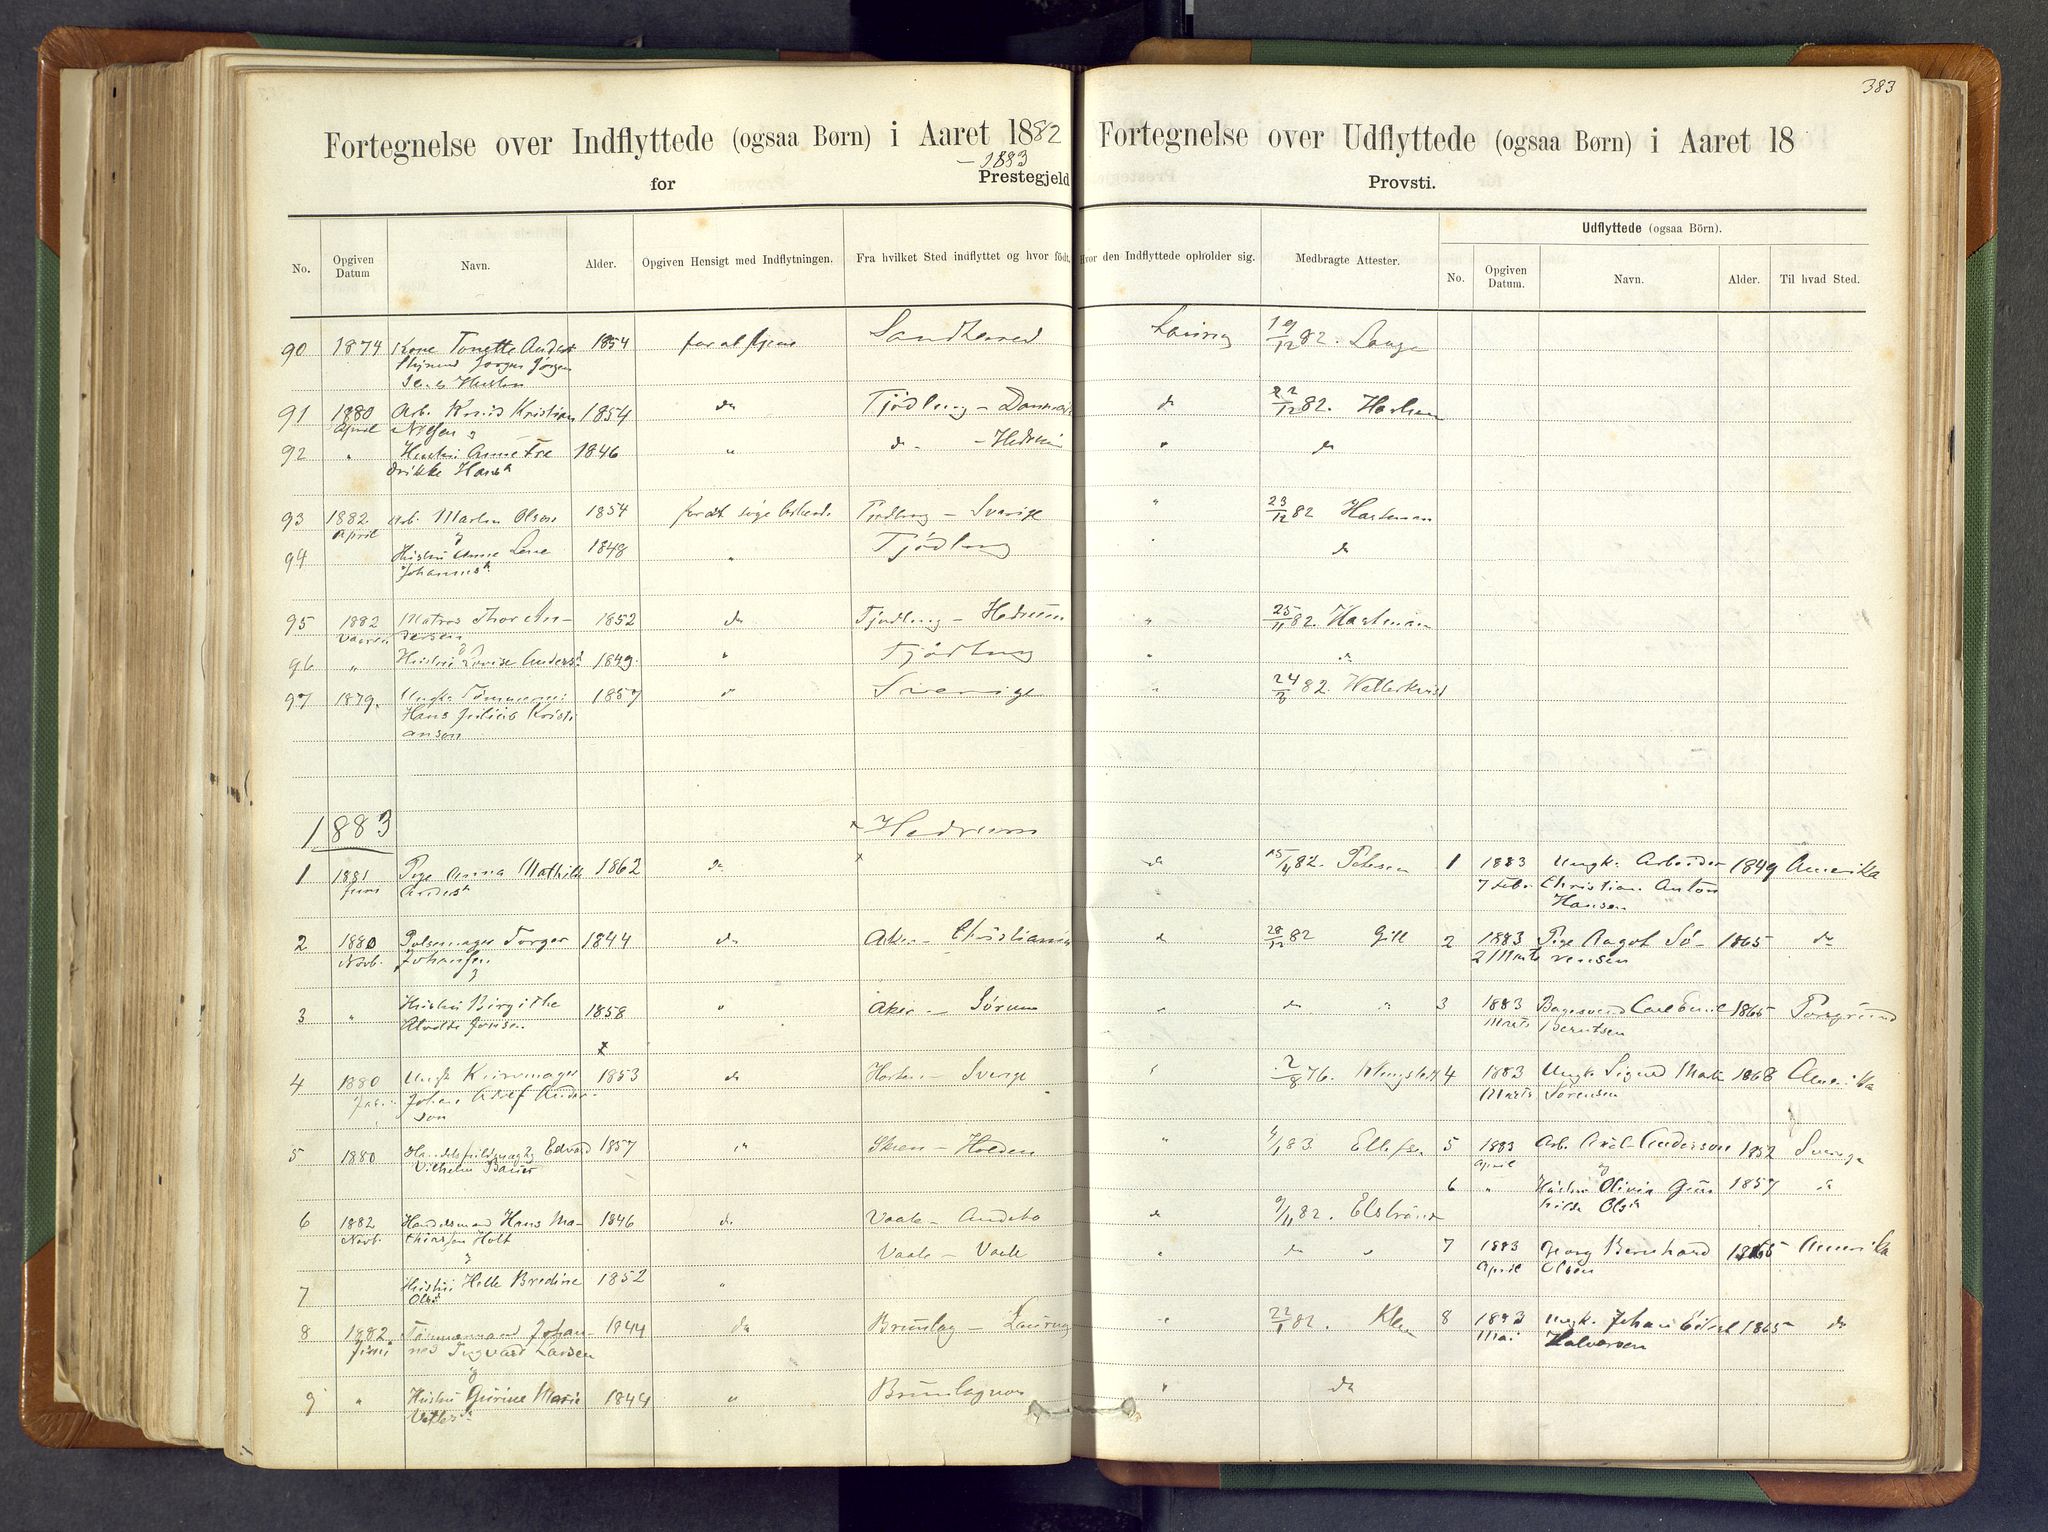 383
Fortegnelse over Indflyttede (ogsaa Børn) i Aaret 1882
- 1883
for Prestegjeld
No. Opgiven Datum Navn. Alder. Opgiven Hensigt med Indflytningen. Fra hvilket Sted indflyttet og hvor født.
Fortegnelse over Udflyttede (ogsaa Børn) i Aaret 18
Provsti.
Hvor den Indflyttede opholder sig. Medbragte Attester.
Udflyttede (ogsaa Börn).
No. Opgiven Datum. Navn. Alder. Til hvad Sted.
90 1874 Kone Tonette Anders 1854 for at tjene Sandherred Laurvig 19/12 82. Lange
91 1880 Arb. Knud Kristian 1854 do Tjödling - Danmark do 22/12 82. Hartman
April Nilsen
92 " Hustru Anne Fre 1846 " do - Hedrum " do
drikke Hansd
93 1882 Arb. Martin Olsen 1854 for at söge Arbeide Tjödling - Sverige " 23/12 82 Hartman
April &
94 Hustru Anne Lene 1848 " Tjödling " do
Johannesd
95 1882 Matros Thor An- 1852 do Tjödling - Hedrum " 25/11 82. Hartman
Vaaren dersen
96 " Hustru Lovise Andersd 1849. " Tjödling " do
97 1879. Ungk. Tömmermd 1857 " Sverige " 24/3 82.
Hans Julius Kristi
anson
1883
Hedrum
1 1881 Pige Anna Mathilde 1862 do do 15/4 82. Petersen
Juni Andersd
2 1880 Pølsemager Torger 1844 do Aker - Christiania do 28/12 82 Gill
Novb. Johansen
&
3 " Hustru Birgithe 1858 " Aker - Sörum " do "
Jensen
4 1880 Ungk. 1853 do Horten - Sverige " 2/8 76.
Johan Adolf Ander-
son
5 1880 Edvard 1857 " Skien - Holden " 9/1 83 Ellefsen
Vilhelm Bauer
6 1882 Handelsmand Hans Ma- 1846 do Vaale - Andebo do 9/11 82.
Novb. thiassen Holt
&
7 Hustru Helle Bredine 1852 " Vaale - Vaale " do "
Olsd
8 1882 Tömmermand Johan- 1844 do Brunlag - Laurvig " 22/1 82.
Juni nes Ingvard Larsen
&
9 " Hustru Gurine Marie 1844 " Brunlagnes " do
1 1883 Ungk. Arbeider 1849 Amerika
7 Febr. Christian Anton
Hansen
2 1883 Pige Ragot Sö- 1865 do
2 Marts rensen
3 1883 Bagersvend Carl Emil 1865 Porsgrund
Marts Berntsen
4 1883 Ungk. Sigurd 1868 Amerika
Marts Sörensen
5 1883 Arb. Axel Anderson 1852 Sverige
April &
6 " Hustru Olivia Gun 1857 do
hilde Olsd
7 1883 Georg Bernhard 1865 Amerika
April Olsen
8 1883 Ungk. Johan Edvel 1865 do
Mai Halvorsen